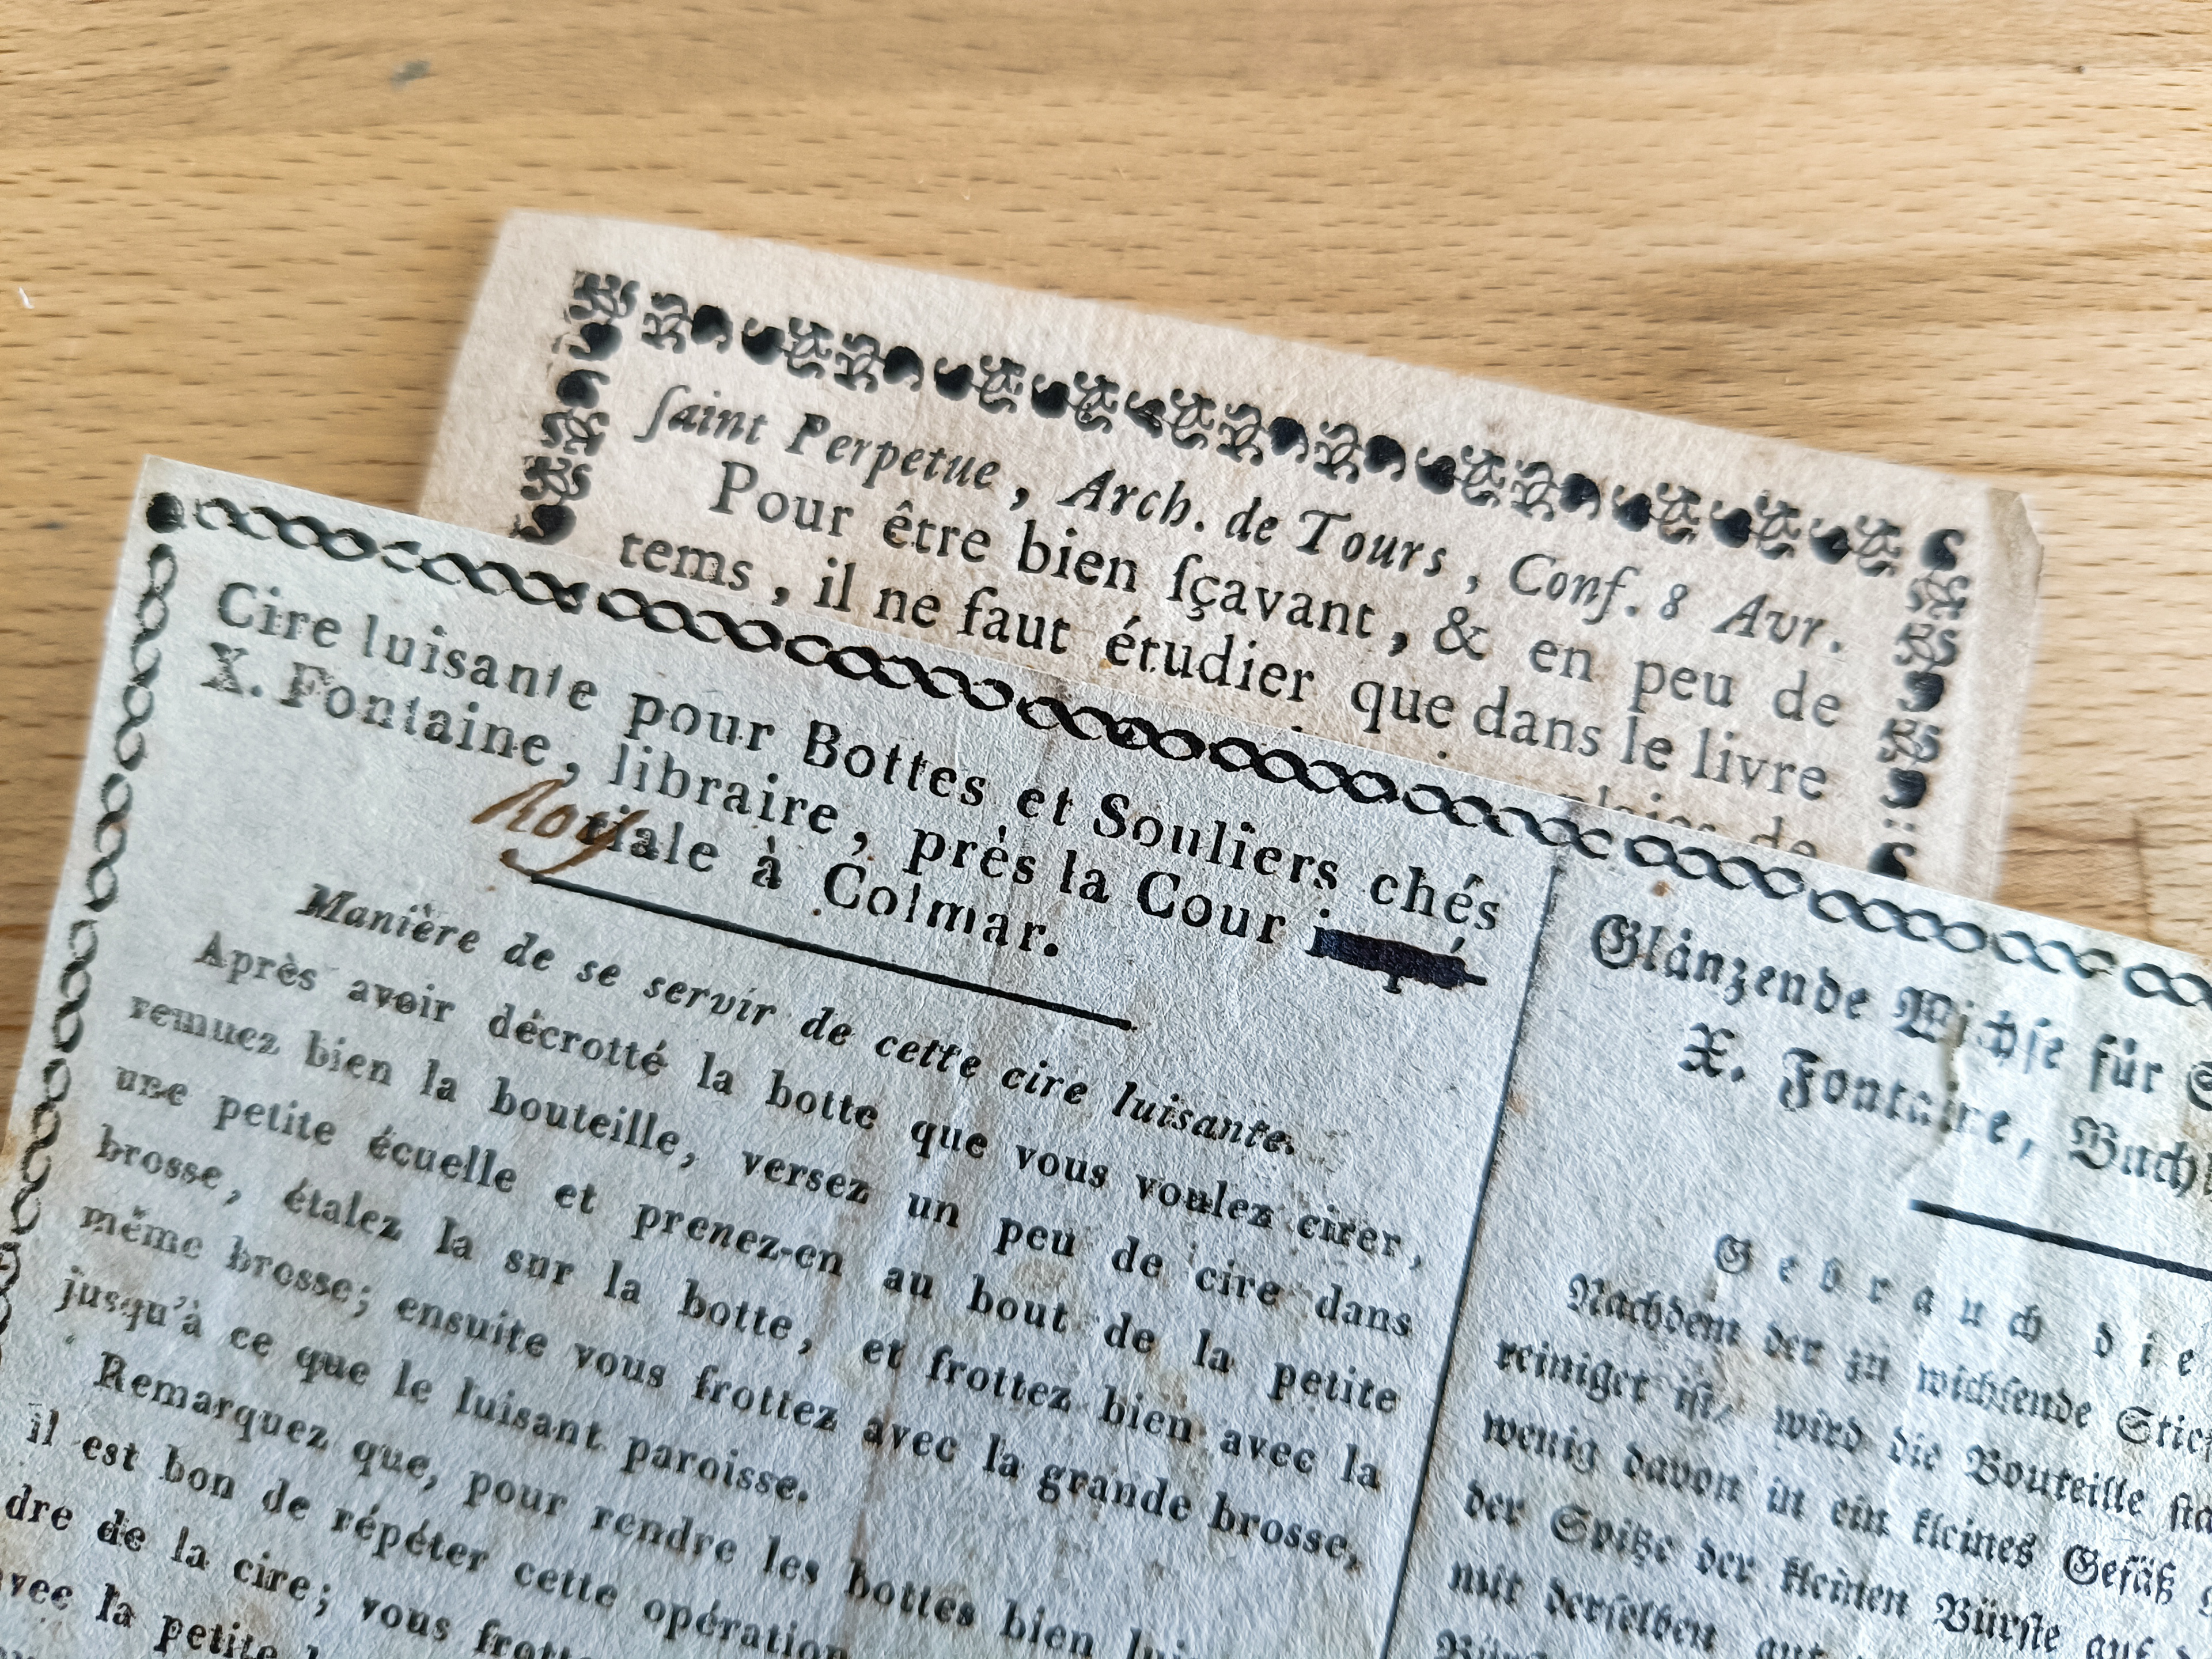 ſaint Perpetue, Arch. de Tours, Conf. 8 Avr.
Pour être bien ſçavant, & en peu de
tems, il ne faut étudier que dans le livre
de
Cire luisante pour Bottes et Souliers chés
X. Fontaine, libraire, près la Cour
Roy
riale à Colmar.
Manière de se servir de cette cire luisante.
Après avoir décrotté la botte que vous voulez cirer,
remuez bien la bouteille, versez un peu de cire dans
une petite écuelle et prenez-en au bout de la petite
brosse, étalez la sur la botte, et frottez bien avec la
même brosse; ensuite vous frottez avec la grande brosse,
jusqu'à ce que le luisant paroisse.
Remarquez que, pour rendre les bottes bien
il est bon de répéter cette opération
dre de la cire; vous
la petite
Glänzende Wichſe für
X. Fontaine,
Gebrauch
Nachdem der zu wichſende
reiniget iſt, wird die Bouteille
wenig davon in ein kleines Gefäß
der Spitze der kleinen Bürſte auf
mit derſelben